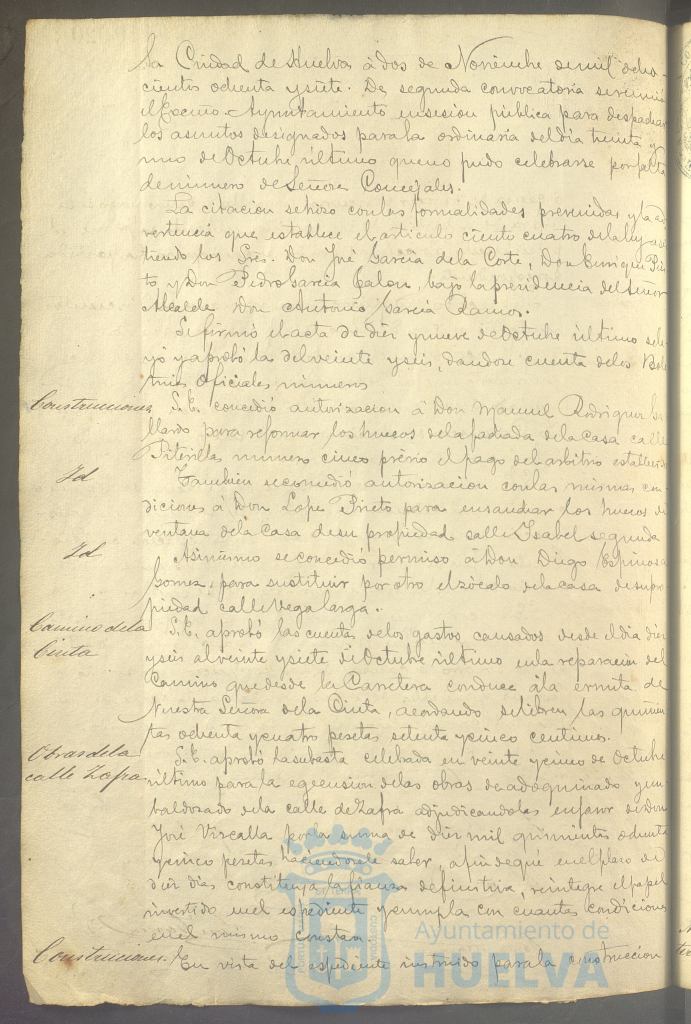 la Ciudad de Huelva á dos de Noviembre de mil ocho-
cientos ochenta y siete. De segunda convocatoria se reunió
el Excmo. Ayuntamiento en sesion pública para despachar
los asuntos designados para la ordinaria del dia treinta y
uno de Octubre último que no pudo celebrarse por falta
de número de Señores Concejales.
La citacion se hizo con las formalidades prevenidas y la ad-
vertencia que establece el articulo ciento cuatro de la ley asis
tiendo los Sres. Don José Garcia de la Corte, Don Enrique Pin
to y Don Pedro Garcia Jalon, bajo la presidencia del Señor
Alcalde Don Antonio Garcia Ramos.
Se firmó el acta de diez y nueve de Octubre último se le
yó y aprobó la del veinte y seis, dandose cuenta de los Bole
tines Oficiales números
Construcciones S.E. concedió autorizacion á Don Manuel Rodriguez Ga
llardo para reformar los huecos de la fachada de la casa calle
Puterilla número cinco prévio el pago del arbitrio establecido
Id Tambien se concedió autorizacion con las mismas con
diciones á Don Lope Prieto para ensanchar los huecos de
ventana de la casa de su propiedad calle Isabel segunda
Id Asimismo se concedió permiso á Don Diego Espinosa
Gomez, para sustituir por otro el zócalo de la casa de su pro
piedad calle Vega larga.
Camino de la Cinta S.E. aprobó las cuentas de los gastos causados desde el dia diez
y seis al veinte y siete de Octubre último en la reparación del
Camino que desde la Carretera conduce á la ermita de
Nuestra Señora de la Cinta, acordando se libren las quinien
tas ochenta y cuatro pesetas setenta y cinco centimos.
Obras de la calle Zafra S.E. aprobó la subasta celebrada en veinte y cinco de Octubre
último para la egecusion de las obras de adoquinado y em
baldozado de la calle de Zafra adjudicandolas en favor de Don
José Vizcalla por la suma de diez mil quinientas ochenta
y cinco pesetas haciendosele saber, á fin de que en el plazo de
diez dias constituya la fianza definitiva, reintegre el papel
invertido en el espediente y cumpla con cuantas condiciones
en el mismo constan
Construcciones. En vista del espediente instruido para la construccion
Ayuntamiento de
HUELVA